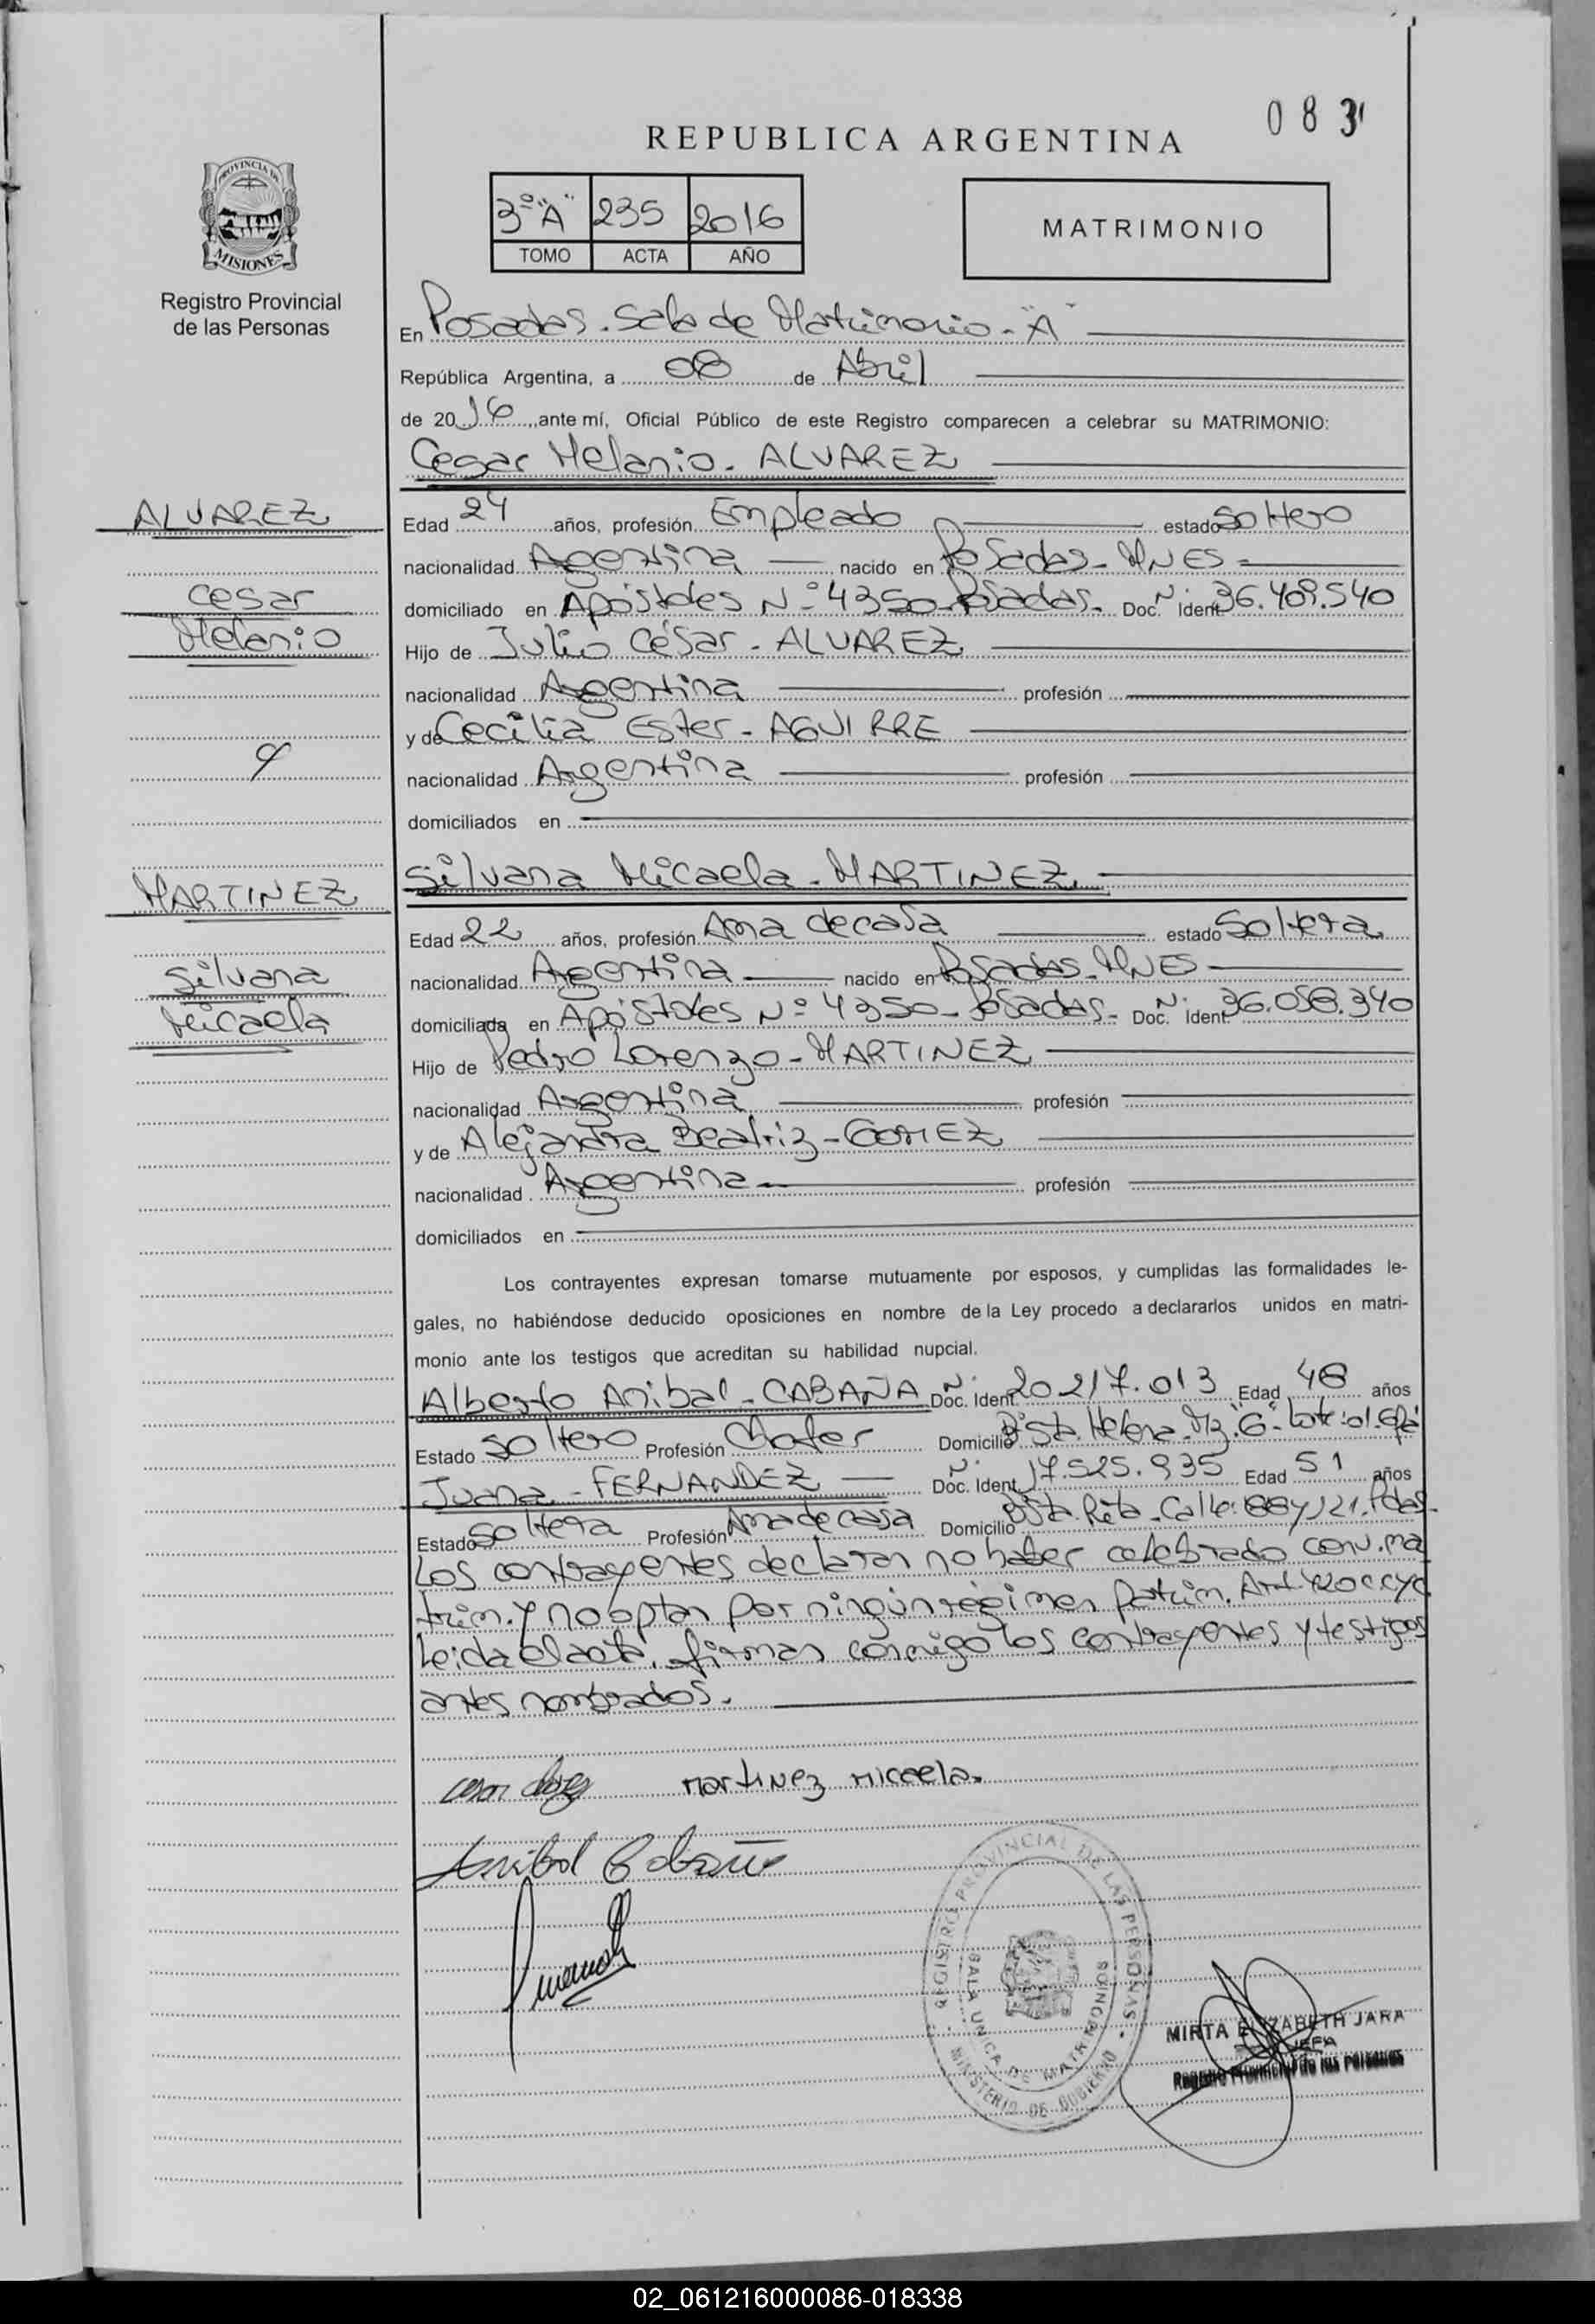 083
REPUBLICA ARGENTINA
PROVINCIA DE
MISIONES
Registro Provincial
de las Personas
3º "A" 235 2016
TOMO ACTA AÑO
MATRIMONIO
En Posadas. Sala de Matrimonio - "A"
República Argentina, a 08 de Abril
de 2016, ante mí, Oficial Público de este Registro comparecen a celebrar su MATRIMONIO:
Cesar Melanio - ALVAREZ
ALVAREZ
Cesar
Melanio
y
Edad 24 años, profesión Empleado estado soltero
nacionalidad Argentina nacido en Posadas - MNES
domiciliado en Apóstoles Nº 4350 - Posadas - Doc. Ident. Nº 36.409.540
Hijo de Julio César - ALVAREZ
nacionalidad Argentina profesión
y de Cecilia Ester - AGUIRRE
nacionalidad Argentina profesión
domiciliados en
Silvana Micaela - MARTINEZ
MARTINEZ
Silvana
Micaela
Edad 22 años, profesión Ama de casa estado Soltera
nacionalidad Argentina nacido en Posadas - MNES
domiciliada en Apóstoles Nº 4350 - Posadas - Doc. Ident. Nº 36.058.340
Hijo de Pedro Lorenzo - MARTINEZ
nacionalidad Argentina profesión
y de Alejandra Beatriz - GOMEZ
nacionalidad Argentina profesión
domiciliados en
Los contrayentes expresan tomarse mutuamente por esposos, y cumplidas las formalidades le-
gales, no habiéndose deducido oposiciones en nombre de la Ley procedo a declararlos unidos en matri-
monio ante los testigos que acreditan su habilidad nupcial.
Alberto Anibal - CABAÑA Doc. Ident. Nº 20.217.013 Edad 48 años
Estado soltero Profesión Chofer Domicilio Bº Sta. Helena - Mz. "G" - Lote: 01
Juana - FERNANDEZ Doc. Ident. Nº 17.525.935 Edad 51 años
Estado Soltera Profesión Ama de casa Domicilio Bº Sta. Rita - Calle: 88 y 121. Pdas.
Los contrayentes declaran no haber celebrado conv. ma
trim. y no optan por ningún régimen patrim. Art. 420 CCyC
Leida el acta, firman conmigo los contrayentes y testigos
antes nombrados.
Martinez Micaela.
Anibal Cabaña
REGISTRO PROVINCIAL DE LAS PERSONAS
SALA UNICA DE MATRIMONIOS
MINISTERIO DE GOBIERNO
MIRTA ELIZABETH JARA
JEFA
Registro Provincial de las Personas
02_061216000086-018338